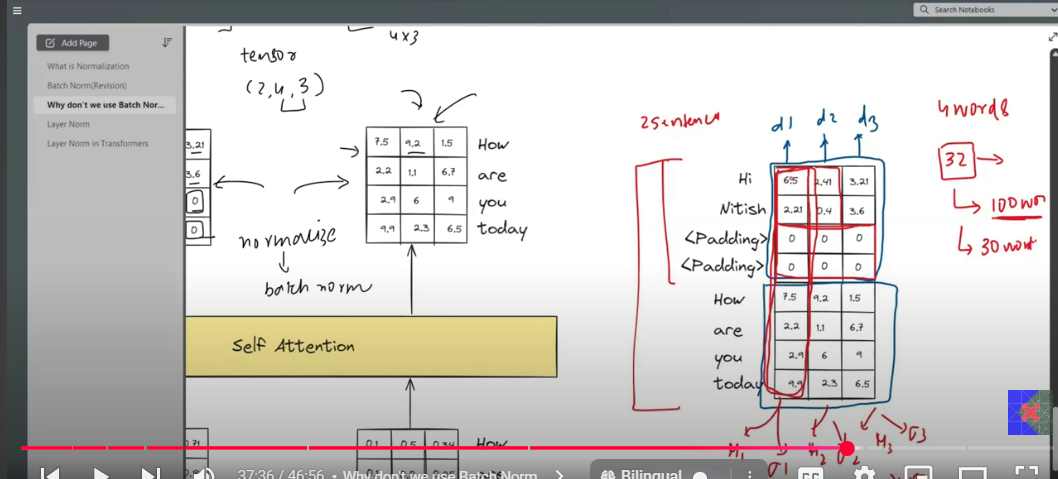 Search Notebooks
Add Page
What is Normalization
Batch Norm(Revision)
Why don't we use Batch Nor...
Layer Norm
Layer Norm in Transformers
4x3
tensor
(2,4,3)
3.21
3.6
0
0
7.5 9.2 1.5 How
2.2 1.1 6.7 are
2.9 6 9 you
9.9 2.3 6.5 today
normalize
batch norm
Self Attention
0.71
0.1 0.5 0.34 How
2 sentence
d1 d2 d3
Hi 6.5 2.41 3.21
Nitish 2.21 0.4 3.6
<Padding> 0 0 0
<Padding> 0 0 0
How 7.5 9.2 1.5
are 2.2 1.1 6.7
you 2.9 6 9
today 9.9 2.3 6.5
μ1 σ1 μ2 σ2 μ3 σ3
4 words
32
100 wor
30 wor
37:36 / 46:56 • Why don't we use Batch Norm
Bilingual
CC